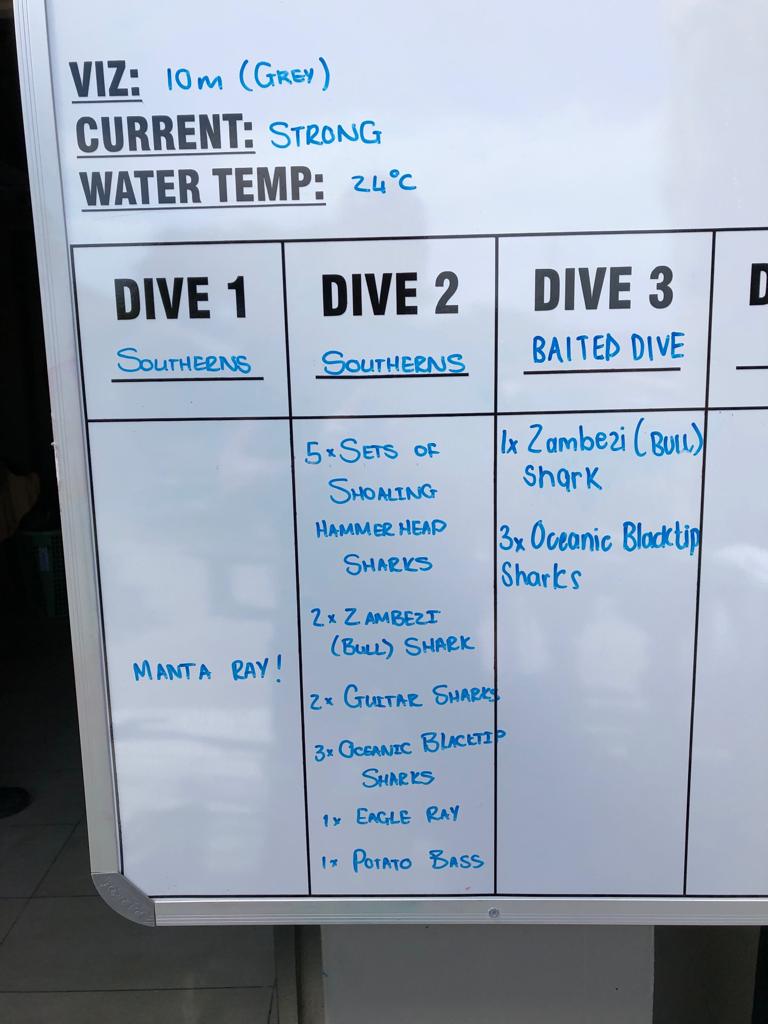 VIZ: 10m (GREY)
CURRENT: STRONG
WATER TEMP: 24°C
DIVE 1
SOUTHERNS
MANTA RAY!
DIVE 2
SOUTHERNS
5x SETS OF
SHOALING
HAMMER HEAD
SHARKS
2x ZAMBEZI
(BULL) SHARK
2x GUITAR SHARKS
3x OCEANIC BLACKTIP
SHARKS
1x EAGLE RAY
1x POTATO BASS
DIVE 3
BAITED DIVE
1x Zambezi (BULL)
Shark
3x Oceanic Blacktip
Sharks
D